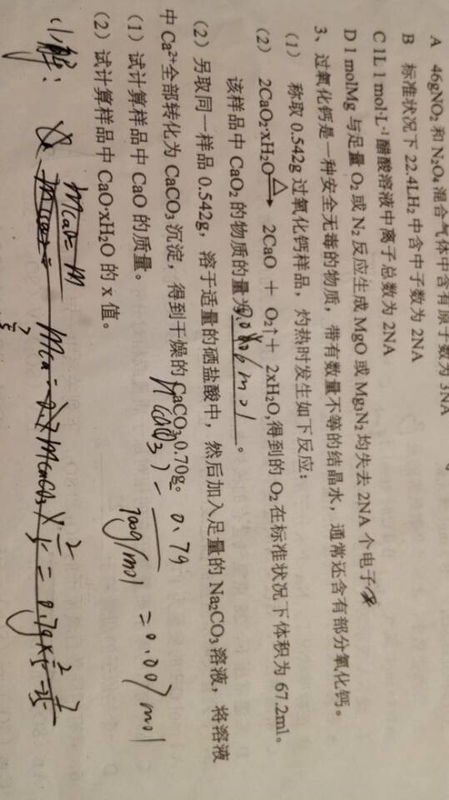 A 46gNO₂ 和 N₂O₄ 混合气体中含有原子数为 3NA
B 标准状况下 22.4LH₂ 中含中子数为 2NA
C 1L 1 mol·L⁻¹ 醋酸溶液中离子总数为 2NA
D 1 molMg 与足量 O₂ 或 N₂ 反应生成 MgO 或 Mg₃N₂ 均失去 2NA 个电子
3、过氧化钙是一种安全无毒的物质，带有数量不等的结晶水，通常还含有部分氧化钙。
(1) 称取 0.542g 过氧化钙样品，灼热时发生如下反应：
(2) 2CaO₂·xH₂O △ 2CaO + O₂↑+ 2xH₂O,得到的 O₂ 在标准状况下体积为 67.2ml。
该样品中 CaO₂ 的物质的量为0.006/mol。
(2) 另取同一样品 0.542g，溶于适量的硒盐酸中，然后加入足量的 Na₂CO₃ 溶液，将溶液
中 Ca²⁺全部转化为 CaCO₃ 沉淀，得到干燥的 CaCO₃ 0.70g。
(1) 试计算样品中 CaO 的质量。
(2) 试计算样品中 CaO·xH₂O 的 x 值。
n(CaCO₃) = 0.7g 100g/mol = 0.007mol
(1)解：